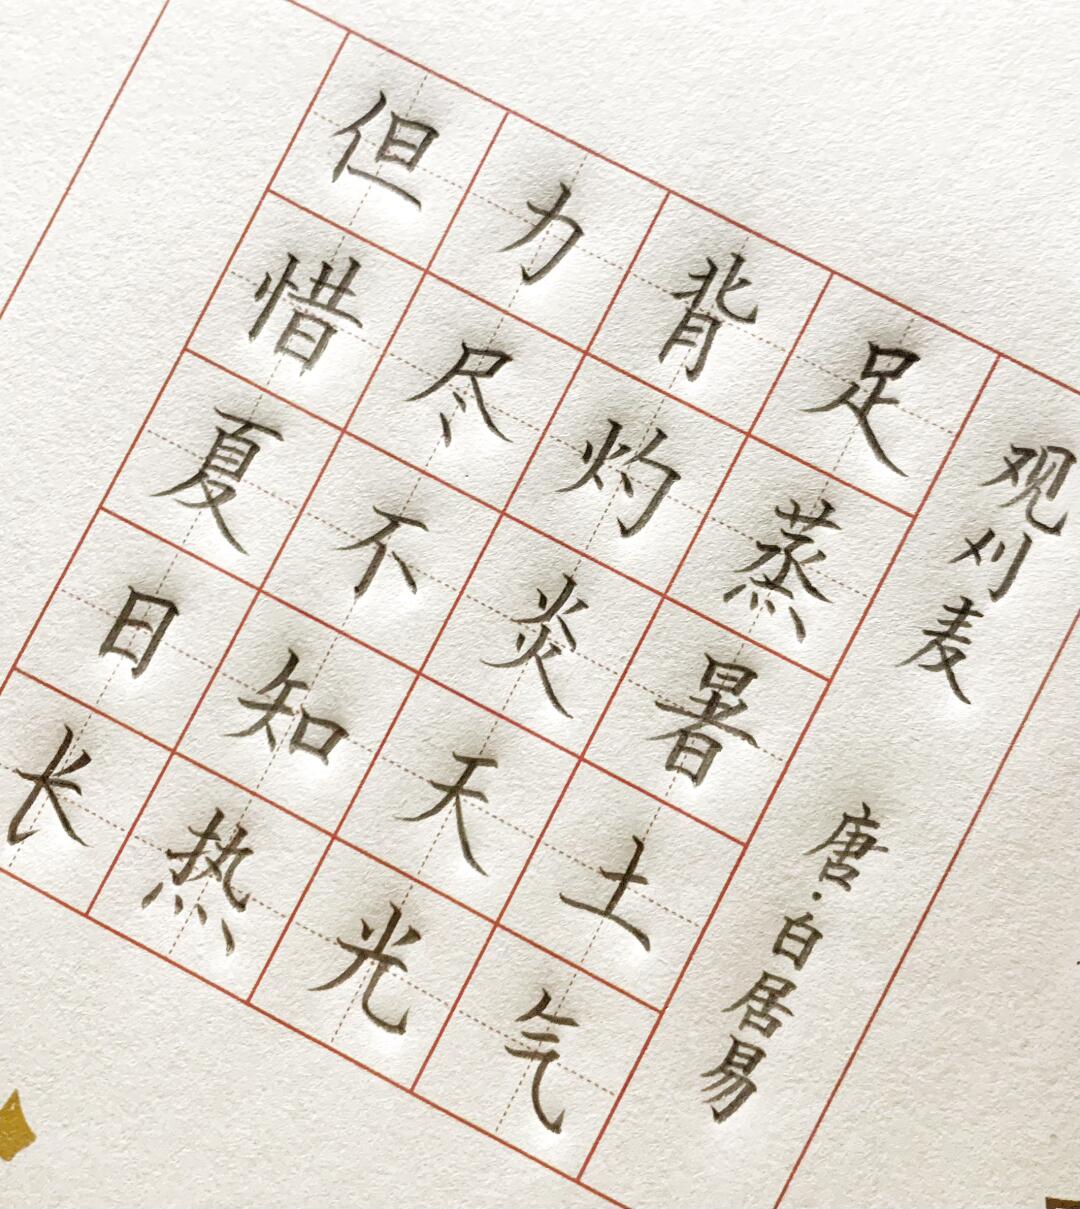 观刈麦 唐·白居易
足蒸暑土气
背灼炎天光
力尽不知热
但惜夏日长